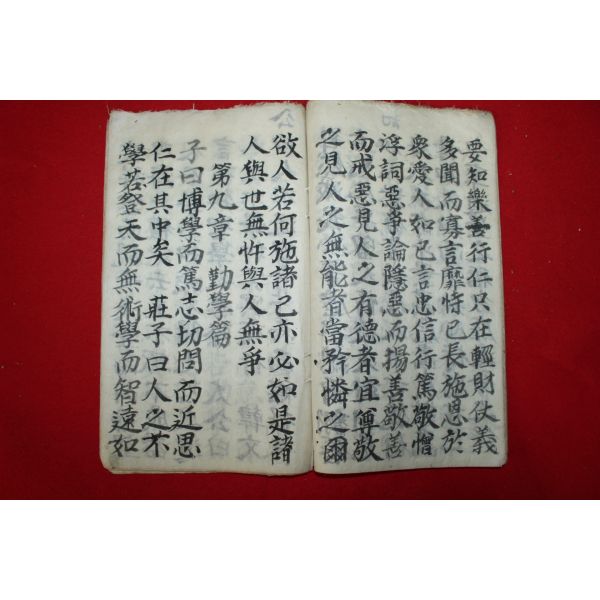 要知樂善行仁只在輕財仗義
多聞而寡言靡恃已長施恩於
衆愛人如已言忠信行篤敬憎
浮詞惡爭論隱惡而揚善敬善
而戒惡見人之有德者宜 敬
之見人之無能者當矜憐之爾
欲人若何施諸己亦必如是諸
人與世無忤與人無爭
第九章 勤學篇
子曰博學而篤志切問而近思
仁在其中矣 莊子曰人之不
學若登天而無術學而智遠如